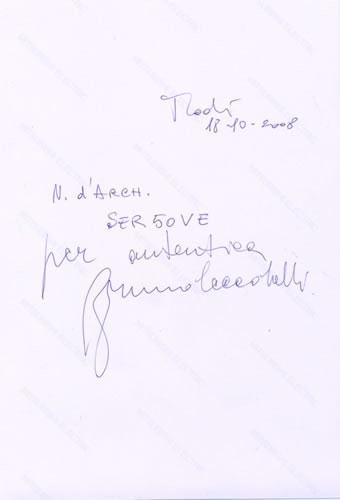 Todi
18-10-2008
N. d'ARCH.
SER50VE
per autentica
Bruno Ceccobelli